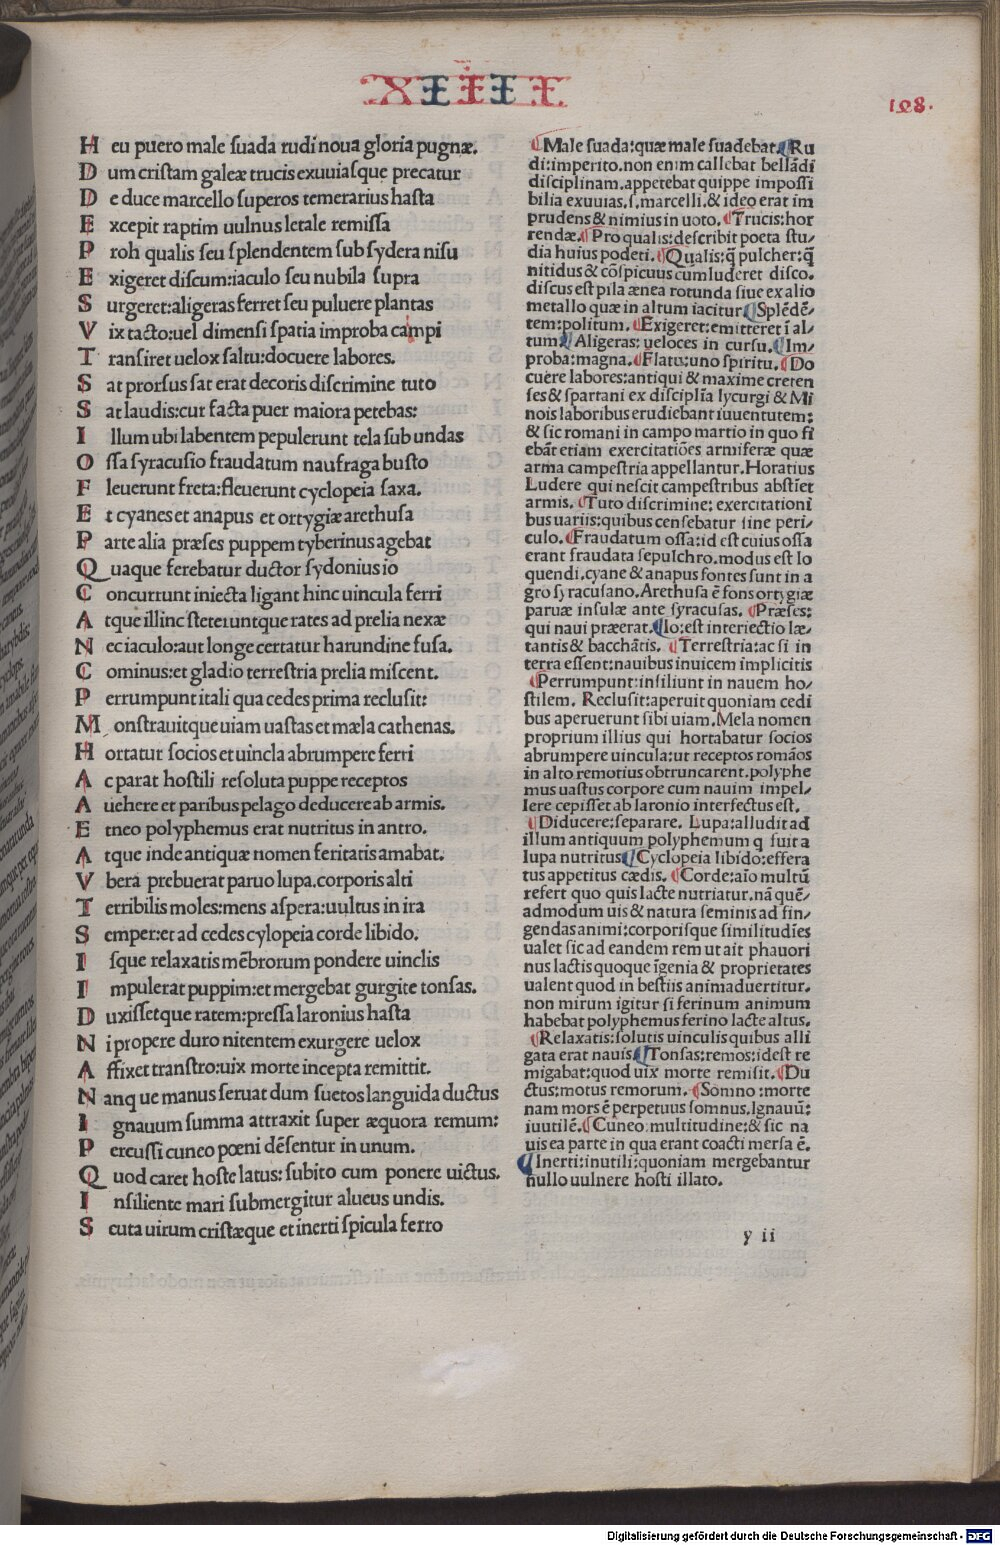 XIIII
108.
Heu puero male suada rudi noua gloria pugnæ.
Dum cristam galeæ trucis exuuiasque precatur
De duce marcello superos temerarius hasta
Excepit raptim uulnus letale remissa
Proh qualis seu splendentem sub sydera nisu
Exigeret discum: iaculo seu nubila supra
Surgeret: aligeras ferret seu puluere plantas
Vix tacto: uel dimensi spatia improba campi
Transiret uelox saltu: docuere labores.
Sat prorsus sat erat decoris discrimine tuto
Sat laudis: cur facta puer maiora petebas:
Illum ubi labentem pepulerunt tela sub undas
Ossa syracusio fraudatum naufraga busto
Fleuerunt freta: fleuerunt cyclopeia saxa.
Et cyanes et anapus et ortygiæ arethusa
Parte alia præses puppem tyberinus agebat
Quaque ferebatur ductor sydonius io
Concurrunt iniecta ligant hinc uincula ferri
Atque illinc steteruntque rates ad prelia nexæ
Nec iaculo: aut longe certatur harundine fusa.
Cominus: et gladio terrestria prelia miscent.
Perrumpunt itali qua cedes prima reclusit:
Monstrauitque uiam uastas et mæla cathenas.
Hortatur socios et uincla abrumpere ferri
Ac parat hostili resoluta puppe receptos
Auehere et paribus pelago deducere ab armis.
Etneo polyphemus erat nutritus in antro.
Atque inde antiquæ nomen feritatis amabat.
Vbera prebuerat paruo lupa. corporis alti
Terribilis moles: mens aspera: uultus in ira
Semper: et ad cedes cylopeia corde libido.
Isque relaxatis mēbrorum pondere uinclis
Impulerat puppim: et mergebat gurgite tonsas.
Duxissetque ratem: pressa laronius hasta
Ni propere duro nitentem exurgere uelox
Affixet transtro: uix morte incepta remittit.
Nanque manus seruat dum suetos languida ductus
Ignauum summa attraxit super æquora remum:
Percussi cuneo pœni dēsentur in unum.
Quod caret hoste latus: subito cum ponere uictus.
Insiliente mari submergitur alueus undis.
Scuta uirum cristæque et inerti spicula ferro
¶Male suada: quæ male suadebat. ¶Ru
di: imperito. non enim callebat bellādi
disciplinam. appetebat quippe impossi
bilia exuuias. s. marcelli. & ideo erat im
prudens & nimius in uoto. ¶Trucis: hor
rendæ. ¶Pro qualis: describit poeta stu/
dia huius podeti. ¶Qualis: q̄ pulcher: q̄
nitidus & cōspicuus cum luderet disco.
discus est pila ænea rotunda siue ex alio
metallo quæ in altum iacitur. ¶Splēdē/
tem: politum. ¶Exigeret: emitteret ī al/
tum ¶Aligeras: ueloces in cursu. ¶Im/
proba: magna. ¶Flatu: uno spiritu. ¶Do
cuere labores: antiqui & maxime creten
ses & spartani ex discipl̄ia lycurgi & Mi
nois laboribus erudiebant iuuentutem:
& sic romani in campo martio in quo fi
ebāt etiam exercitatiōes armiferæ quæ
arma campestria appellantur. Horatius
Ludere qui nescit campestribus abstīet
armis. ¶Tuto discrimine: exercitationi
bus uariis: quibus censebatur sine peri/
culo. ¶Fraudatum ossa: id est cuius ossa
erant fraudata sepulchro. modus est lo
quendi. cyane & anapus fontes sunt in a
gro syracusano. Arethusa ē fons ortygiæ
paruæ insulæ ante syracusas. ¶Præses:
qui naui præerat. ¶Io: est interiectio læ/
tantis & bacchātis. ¶Terrestria: ac si in
terra essent: nauibus inuicem implicitis
¶Perrumpunt: insiliunt in nauem ho/
stilem. Reclusit: aperuit quoniam cedi
bus aperuerunt sibi uiam. Mela nomen
proprium illius qui hortabatur socios
abrumpere uincula: ut receptos romāos
in alto remotius obtruncarent. polyphe
mus uastus corpore cum nauim impel/
lere cepisset ab laronio interfectus est.
¶Diducere: separare. Lupa: alludit ad
illum antiquum polyphemum q fuit a
lupa nutritus ¶Cyclopeia libido: effera
tus appetitus cædis. ¶Corde: aīo multū
refert quo quis lacte nutriatur. nā quē/
admodum uis & natura seminis ad fin/
gendas animi: corporisque similitudīes
ualet sic ad eandem rem ut ait phauori
nus lactis quoque īgenia & proprietates
ualent quod in bestiis animaduertitur.
non mirum igitur si ferinum animum
habebat polyphemus ferino lacte altus.
¶Relaxatis: solutis uinculis quibus alli
gata erat nauis ¶Tonsas: remos: idest re
migabat: quod uix morte remisit. ¶Du
ctus: motus remorum. ¶Somno: morte
nam mors ē perpetuus somnus. Ignauū:
iuutilē. ¶Cuneo: multitudine: & sic na
uis ea parte in qua erant coacti mersa ē.
¶Inerti: inutili: quoniam mergebantur
nullo uulnere hosti illato.
y ii
Digitalisierung gefördert durch die Deutsche Forschungsgemeinschaft - DFG